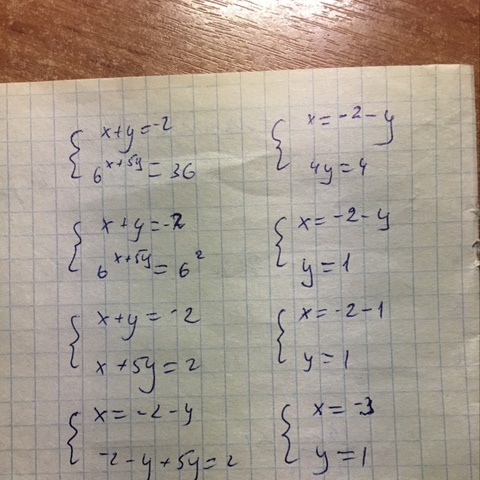 x+y=-2
6^{x+5y}=36
x+y=-2
6^{x+5y}=6^2
x+y=-2
x+5y=2
x=-2-y
-2-y+5y=2
x=-2-y
4y=4
x=-2-y
y=1
x=-2-1
y=1
x=-3
y=1